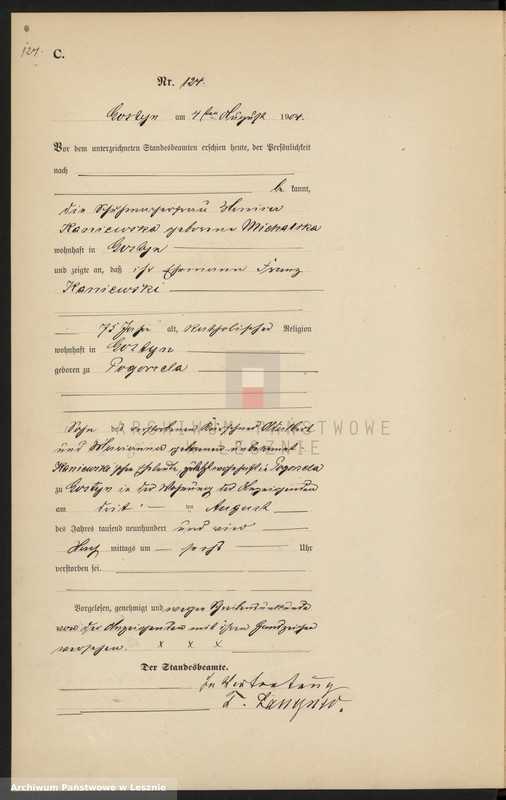 124.
C.
Nr. 124.
Gostyn am 4ten August 1904.
Vor dem unterzeichneten Standesbeamten erschien heute, der Persönlichkeit
nach
be kannt,
die Schuhmacherfrau
Kaniewska geborene Michalska
wohnhaft in Gostyn
und zeigte an, daß ihr Ehemann Franz
Kaniewski
75 Jahre alt, katholischer Religion
wohnhaft in Gostyn
geboren zu Pogorzela
ARCHIWUM PAŃSTWOWE
W LESZNIE
Sohn des verstorbenen
und Marianna geborenen unbekannt
Kaniewski'schen Eheleute zuletzt wohnhaft in Pogorzela
zu Gostyn in der Wohnung der Anzeigenden
am drit - ten August
des Jahres tausend neunhundert und vier
Nach mittags um sechs Uhr
verstorben sei.
Vorgelesen, genehmigt und wegen Schreibensunkunde
von der Anzeigenden mit ihrem Handzeichen
versehen. x x x
Der Standesbeamte.
In Vertretung
Archiwum Państwowe w Lesznie